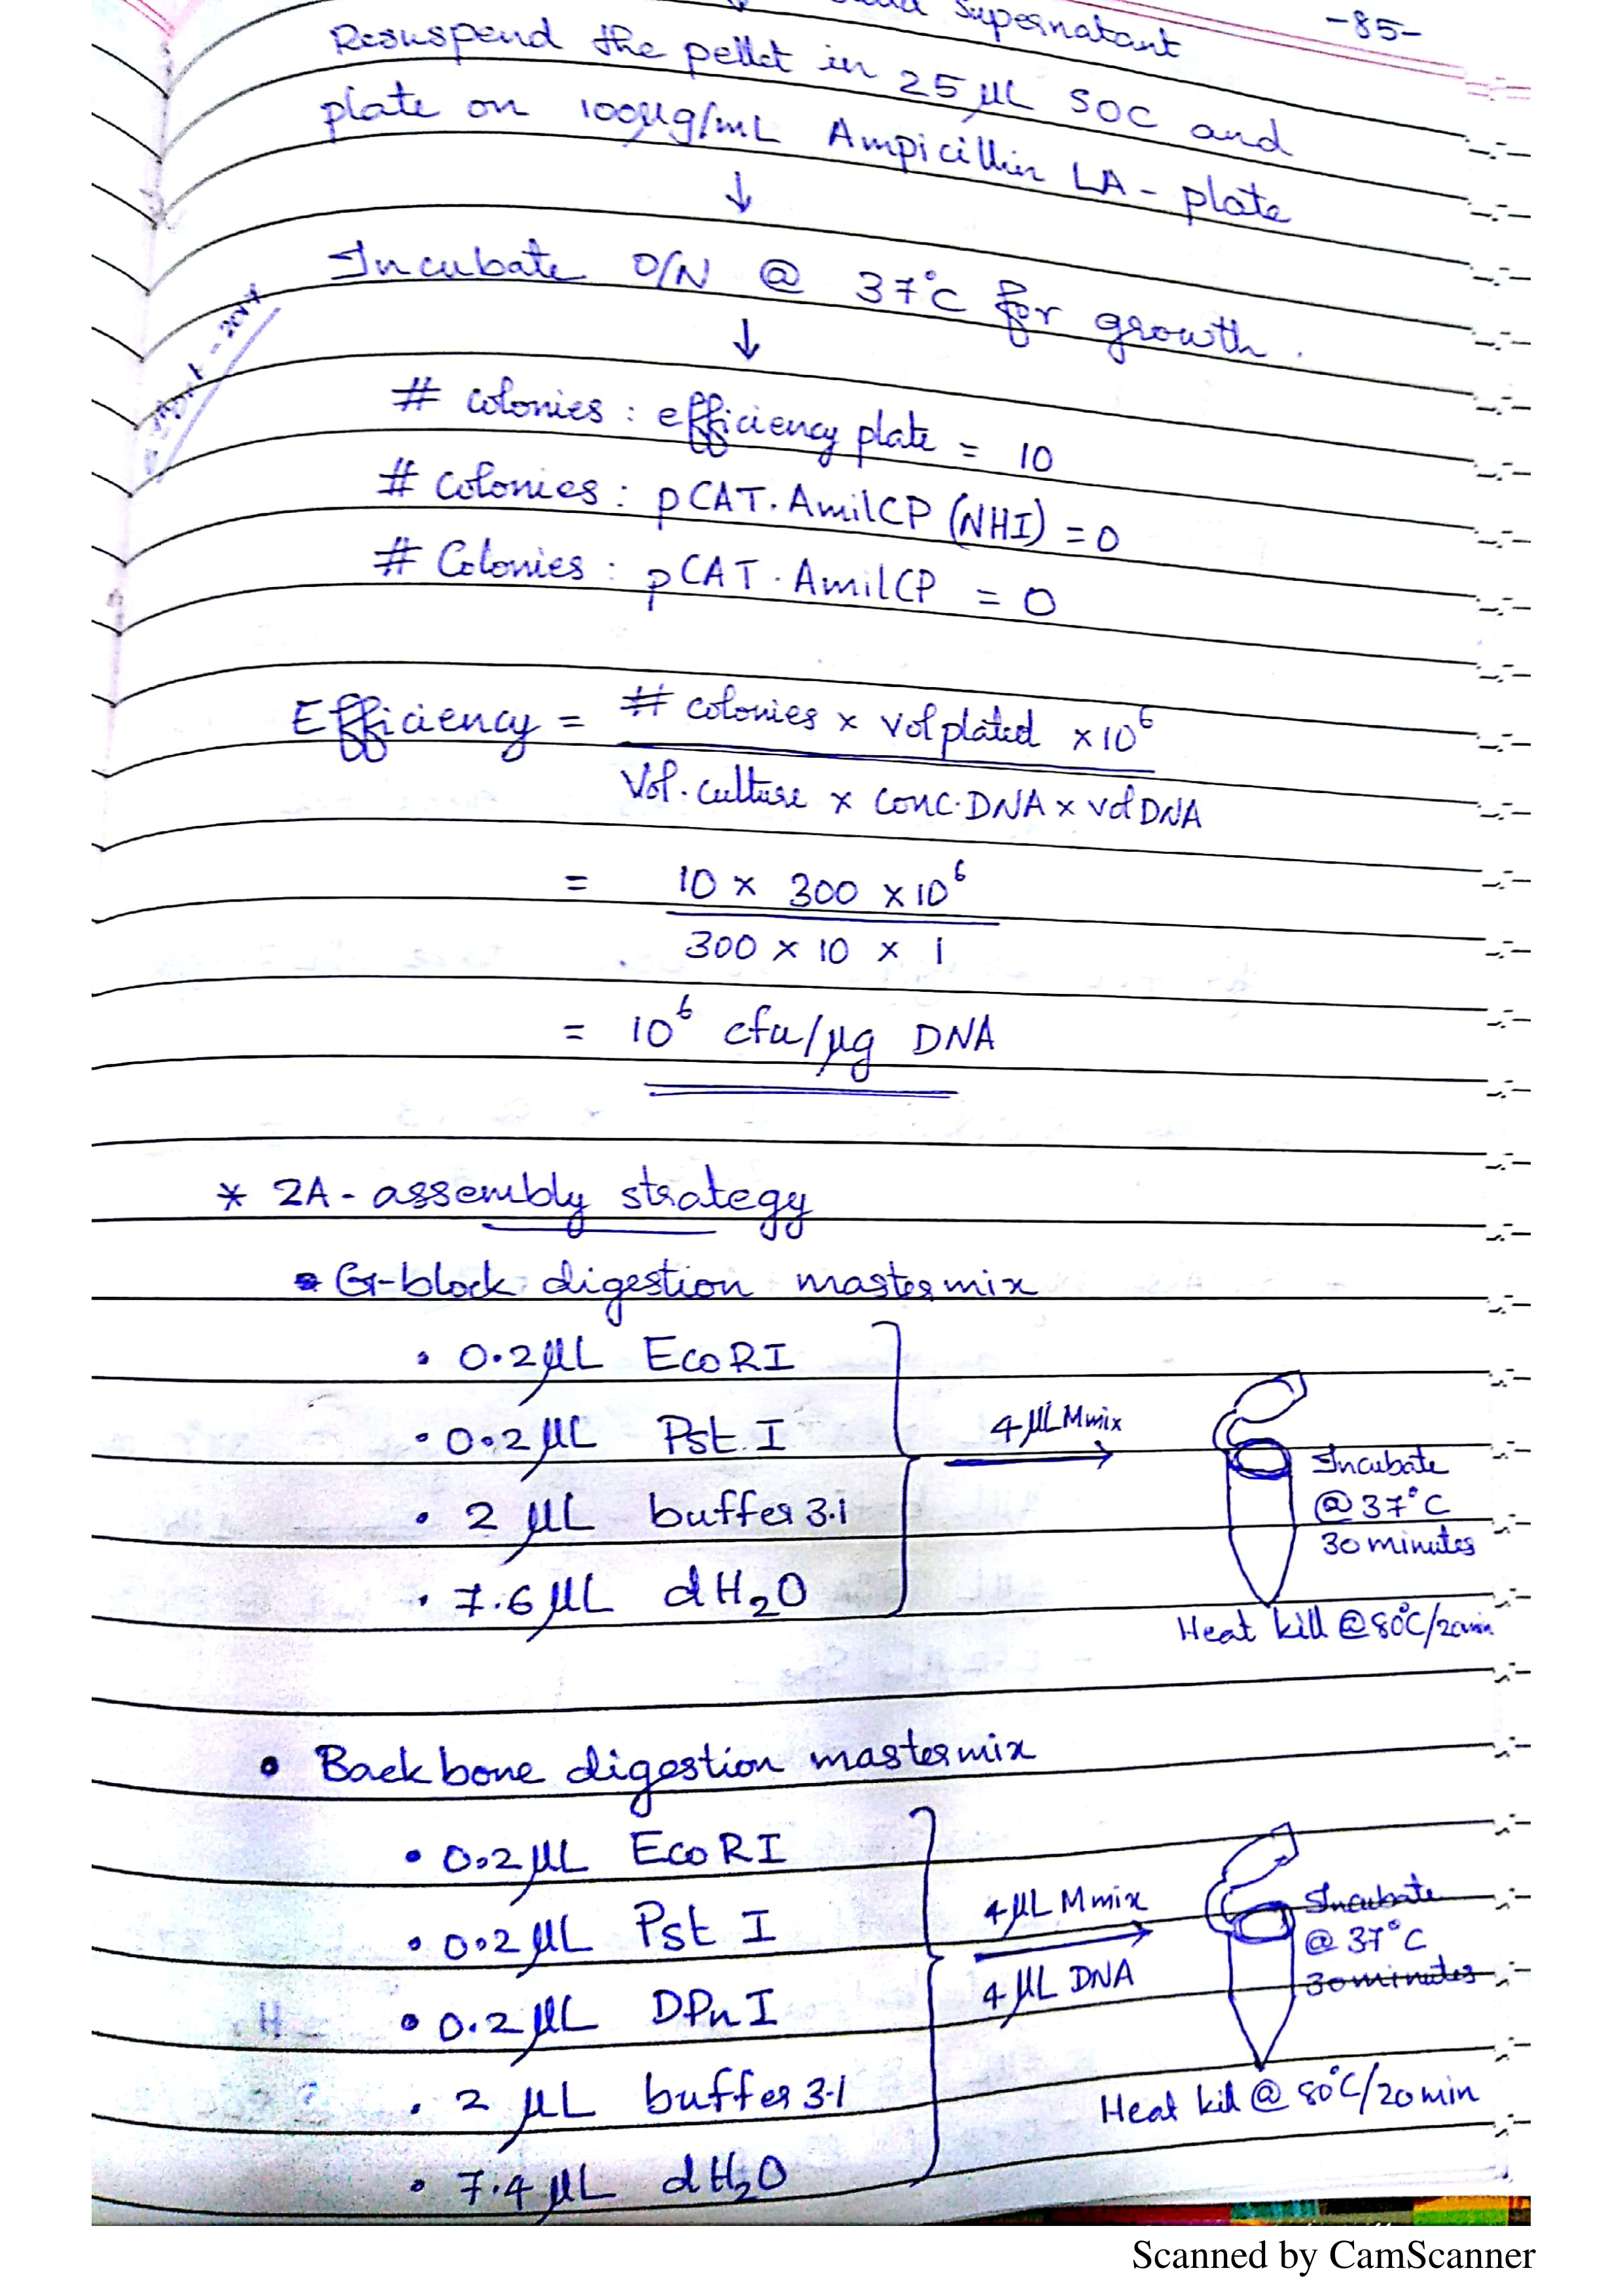 Supernatant
-85-
Resuspend the pellet in 25 μL SOC and
plate on 100μg/mL Ampicillin LA-plate
↓
Incubate O/N @ 37°C for growth.
↓
# colonies : efficiency plate = 10
# colonies : pCAT.AmilCP (NHI) = 0
# Colonies : pCAT.AmilCP = 0
Efficiency = # colonies x vol plated x10⁶
Vol. culture x conc. DNA x vol DNA
= 10 x 300 x10⁶
300 x 10 x 1
= 10⁶ cfu/μg DNA
* 2A-assembly strategy
G-block digestion mastermix
• 0.2μL EcoRI
• 0.2μL Pst I
• 2 μL buffer 3.1
• 7.6μL dH₂O
4μL Mmix
Incubate
@ 37°C
30 minutes
Heat kill @ 80°C/20min
• Backbone digestion mastermix
• 0.2μL EcoRI
• 0.2μL Pst I
• 0.2μL DPn I
• 2 μL buffer 3.1
• 7.4μL dH₂O
4μL Mmix
4μL DNA
Incubate
@ 37°C
30 minutes
Heat kill @ 80°C/20 min
Scanned by CamScanner